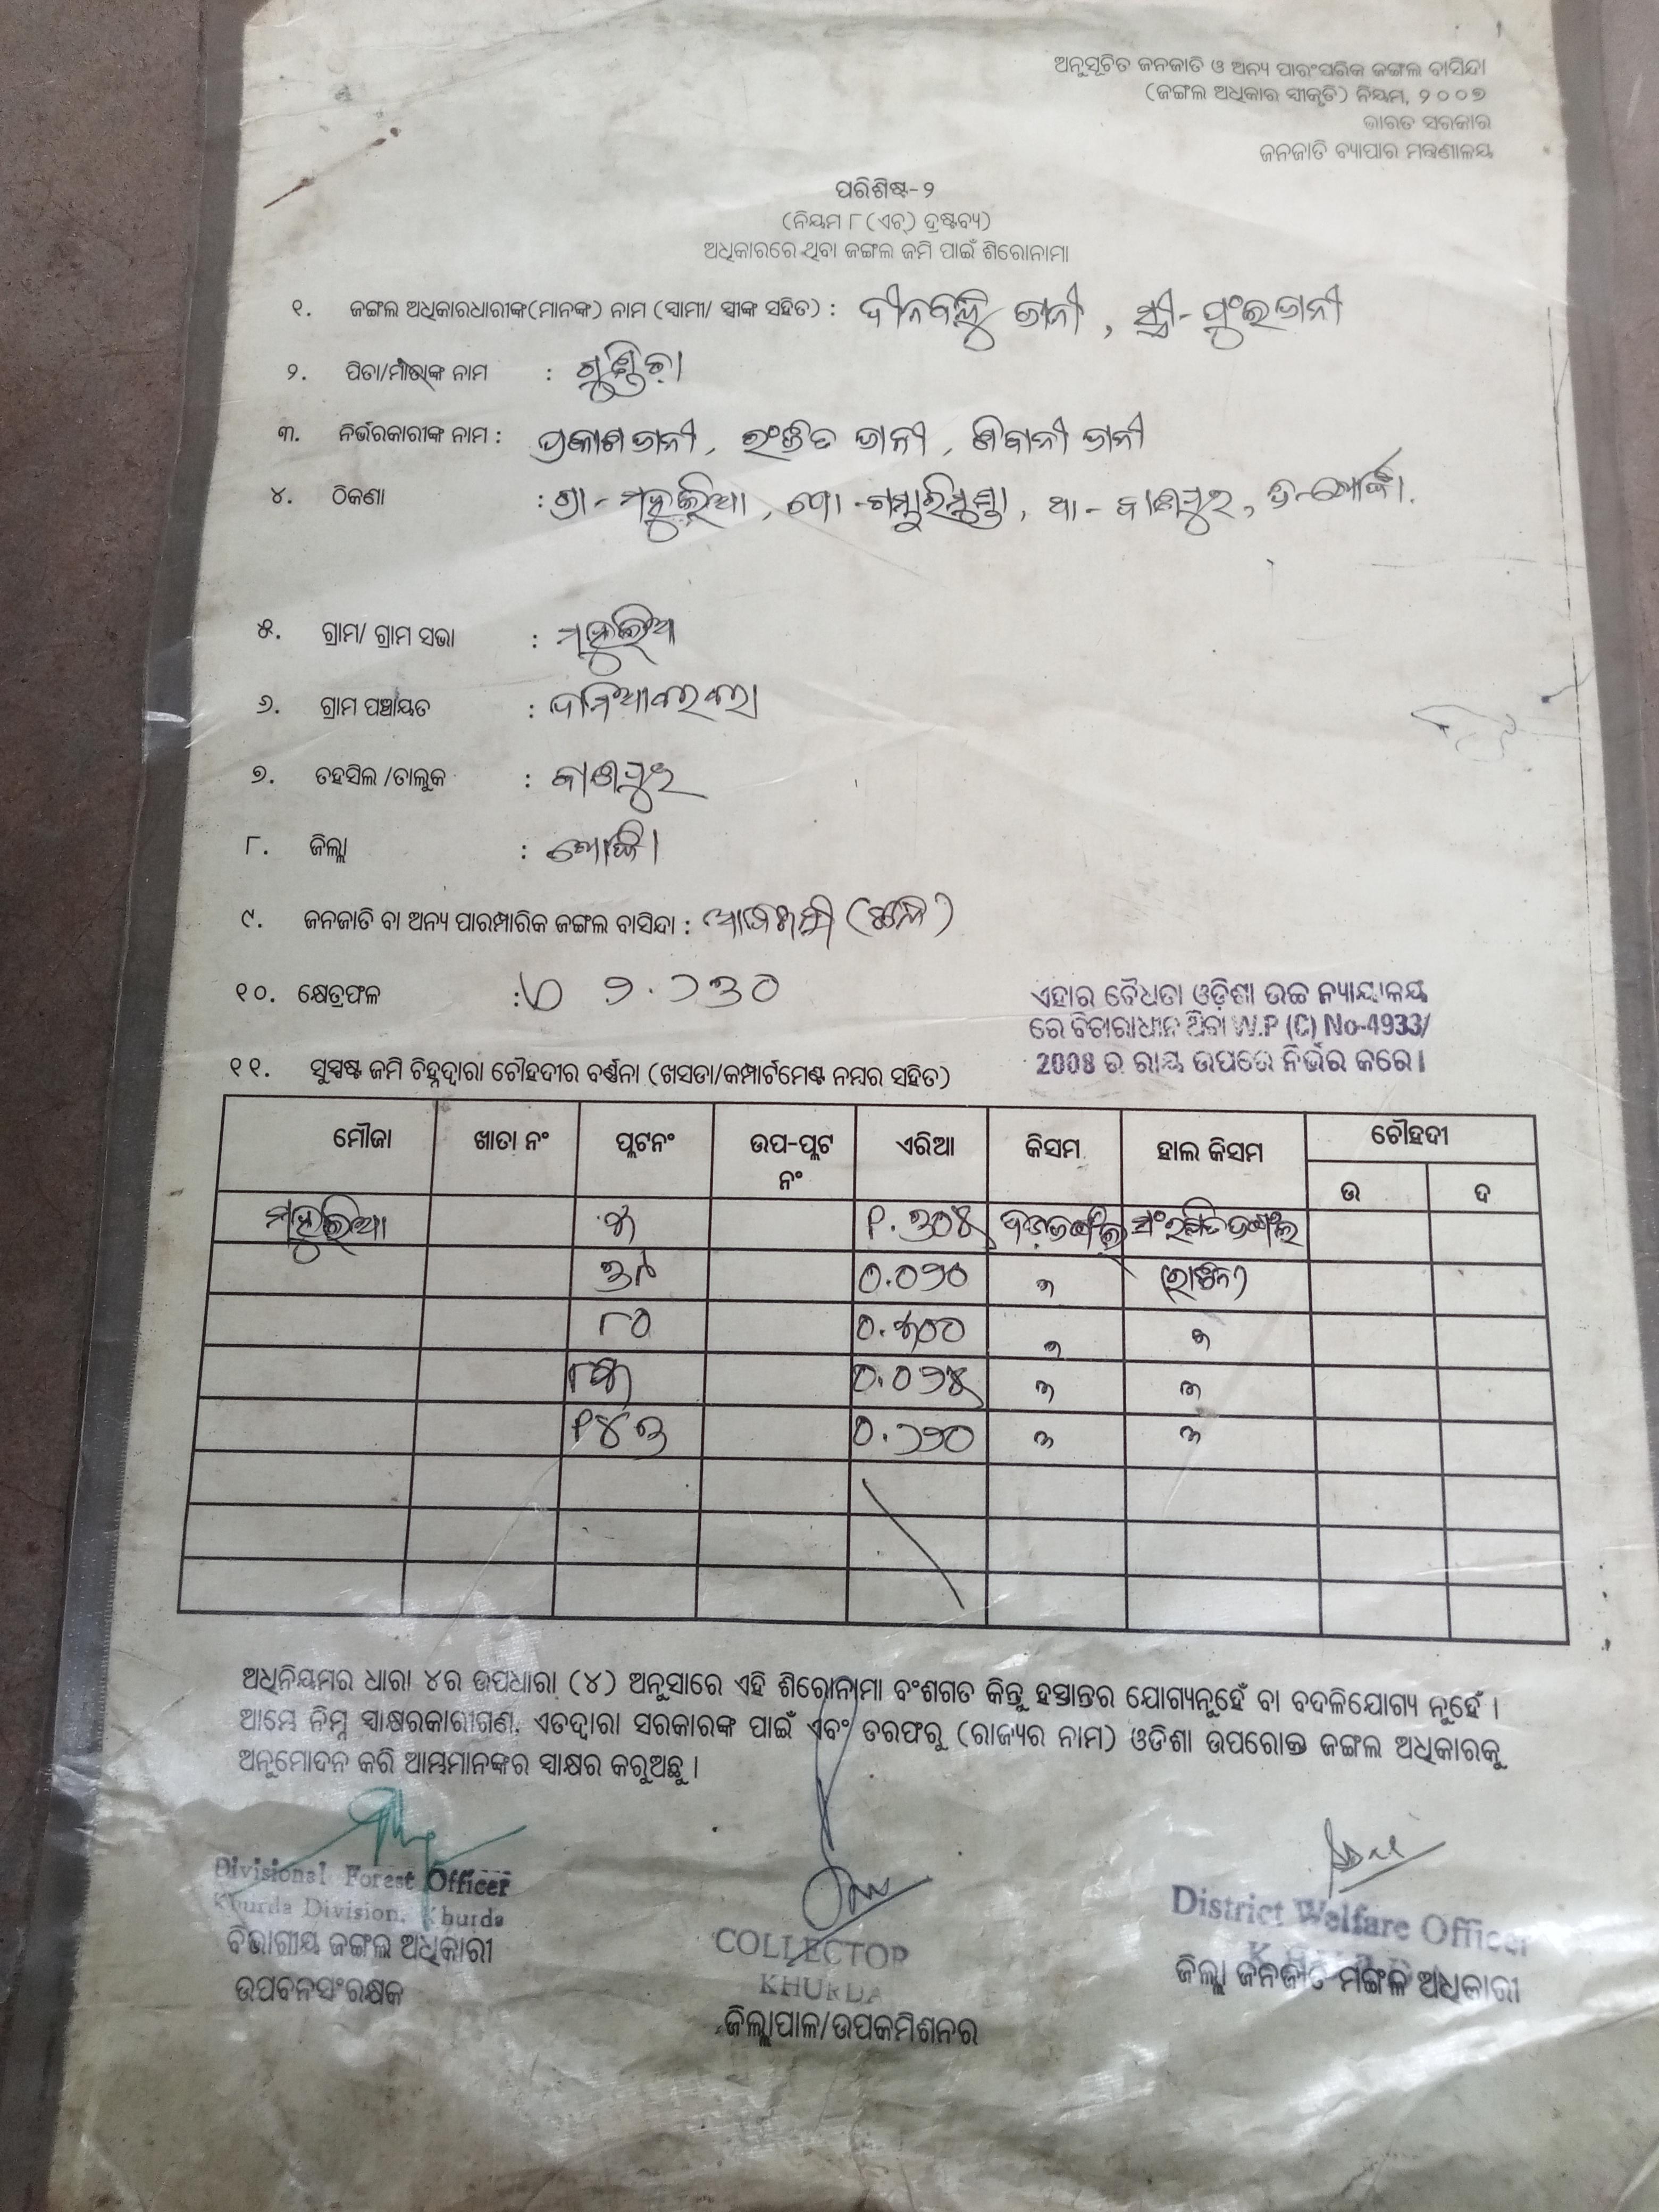 ଅନୁସୂଚିତ ଜନଜାତି ଓ ଅନ୍ୟ ପାରଂପରିକ ଜଙ୍ଗଲ ବାସିନ୍ଦା
(ଜଙ୍ଗଲ ଅଧିକାର ସ୍ୱୀକୃତି) ନିୟମ, ୨୦୦୭
ଭାରତ ସରକାର
ଜନଜାତି ବ୍ୟାପାର ମନ୍ତ୍ରଣାଳୟ
ପରିଶିଷ୍ଟ-୨
(ନିୟମ ୮(ଏଚ୍) ଦ୍ରଷ୍ଟବ୍ୟ)
ଅଧିକାରରେ ଥିବା ଜଙ୍ଗଲ ଜମି ପାଇଁ ଶିରୋନାମା
୧. ଜଙ୍ଗଲ ଅଧିକାରଧାରୀଙ୍କ(ମାନଙ୍କ) ନାମ (ସ୍ୱାମୀ/ ସ୍ତ୍ରୀଙ୍କ ସହିତ) : ଦୀନବନ୍ଧୁ ଜାନୀ, ସ୍ତ୍ରୀ-
୨. ପିତା/ମାତାଙ୍କ ନାମ : ଗୁଣ୍ଡିଚା
୩. ନିର୍ଭରକାରୀଙ୍କ ନାମ : ପ୍ରକାଶ ଜାନୀ, ରଂଜିତ ଜାନୀ, ଶିବାନୀ ଜାନୀ
୪. ଠିକଣା : ଗ୍ରା - ମହୁଲିଆ, ପୋ - ଗମ୍ଭାରିମୁଣ୍ଡା, ଥା - ବାଣପୁର, ଜି-ଖୋର୍ଦ୍ଧା.
୫. ଗ୍ରାମ/ ଗ୍ରାମ ସଭା : ମହୁଲିଆ
୬. ଗ୍ରାମ ପଞ୍ଚାୟତ :
୭. ତହସିଲ /ତାଲୁକ : ବାଣପୁର
୮. ଜିଲ୍ଲା : ଖୋର୍ଦ୍ଧା
୯. ଜନଜାତି ବା ଅନ୍ୟ ପାରମ୍ପାରିକ ଜଙ୍ଗଲ ବାସିନ୍ଦା :
୧୦. କ୍ଷେତ୍ରଫଳ : ୨.୨୩୦
ଏହାର ବୈଧତା ଓଡ଼ିଶା ଉଚ୍ଚ ନ୍ୟାୟାଳୟ
ରେ ବିଚାରାଧୀନ ଥିବା W.P (C) No-4933/
2008 ର ରାୟ ଉପରେ ନିର୍ଭର କରେ।
୧୧. ସୁସ୍ପଷ୍ଟ ଜମି ଚିହ୍ନଦ୍ୱାରା ଚୌହଦୀର ବର୍ଣ୍ଣନା (ଖସଡା/କମ୍ପାର୍ଟମେଣ୍ଟ ନମ୍ବର ସହିତ)
ମୌଜା ଖାତା ନଂ ପ୍ଲଟନଂ ଉପ-ପ୍ଲଟ ନଂ ଏରିଆ କିସମ ହାଲ କିସମ ଚୌହଦୀ
ଉ ଦ
ମହୁଲିଆ ୫ ୧.୩୦୫ ସଂରକ୍ଷିତ ଜଙ୍ଗଲ
୩୯ ୦.୦୨୦ "
୮୦ ୦.୫୦୦ " "
୮୫ ୦.୦୨୫ " "
୧୪୩ " "
ଅଧିନିୟମର ଧାରା ୪ର ଉପଧାରା (୪) ଅନୁସାରେ ଏହି ଶିରୋନାମା ବଂଶଗତ କିନ୍ତୁ ହସ୍ତାନ୍ତର ଯୋଗ୍ୟନୁହେଁ ବା ବଦଳିଯୋଗ୍ୟ ନୁହେଁ।
ଆମ୍ଭେ ନିମ୍ନ ସ୍ୱାକ୍ଷରକାରୀଗଣ, ଏତଦ୍ୱାରା ସରକାରଙ୍କ ପାଇଁ ଏବଂ ତରଫରୁ (ରାଜ୍ୟର ନାମ) ଓଡିଶା ଉପରୋକ୍ତ ଜଙ୍ଗଲ ଅଧିକାରକୁ
ଅନୁମୋଦନ କରି ଆମ୍ଭମାନଙ୍କର ସ୍ୱାକ୍ଷର କରୁଅଛୁ।
Divisional Forest Officer
Khurda Division, Khurda
ବିଭାଗୀୟ ଜଙ୍ଗଲ ଅଧିକାରୀ
ଉପବନସଂରକ୍ଷକ
COLLECTOR
KHURDA
ଜିଲ୍ଲାପାଳ/ଉପକମିଶନର
District Welfare Officer
ଜିଲ୍ଲା ଜନଜାତି ମଙ୍ଗଳ ଅଧିକାରୀ